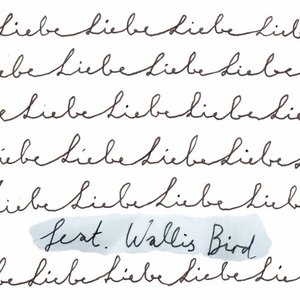 Liebe Liebe Liebe Liebe
Liebe Liebe Liebe Liebe
Liebe Liebe Liebe Liebe
Liebe Liebe Liebe Liebe
Liebe Liebe Liebe Liebe
feat. Wallis Bird
Liebe Liebe Liebe Liebe